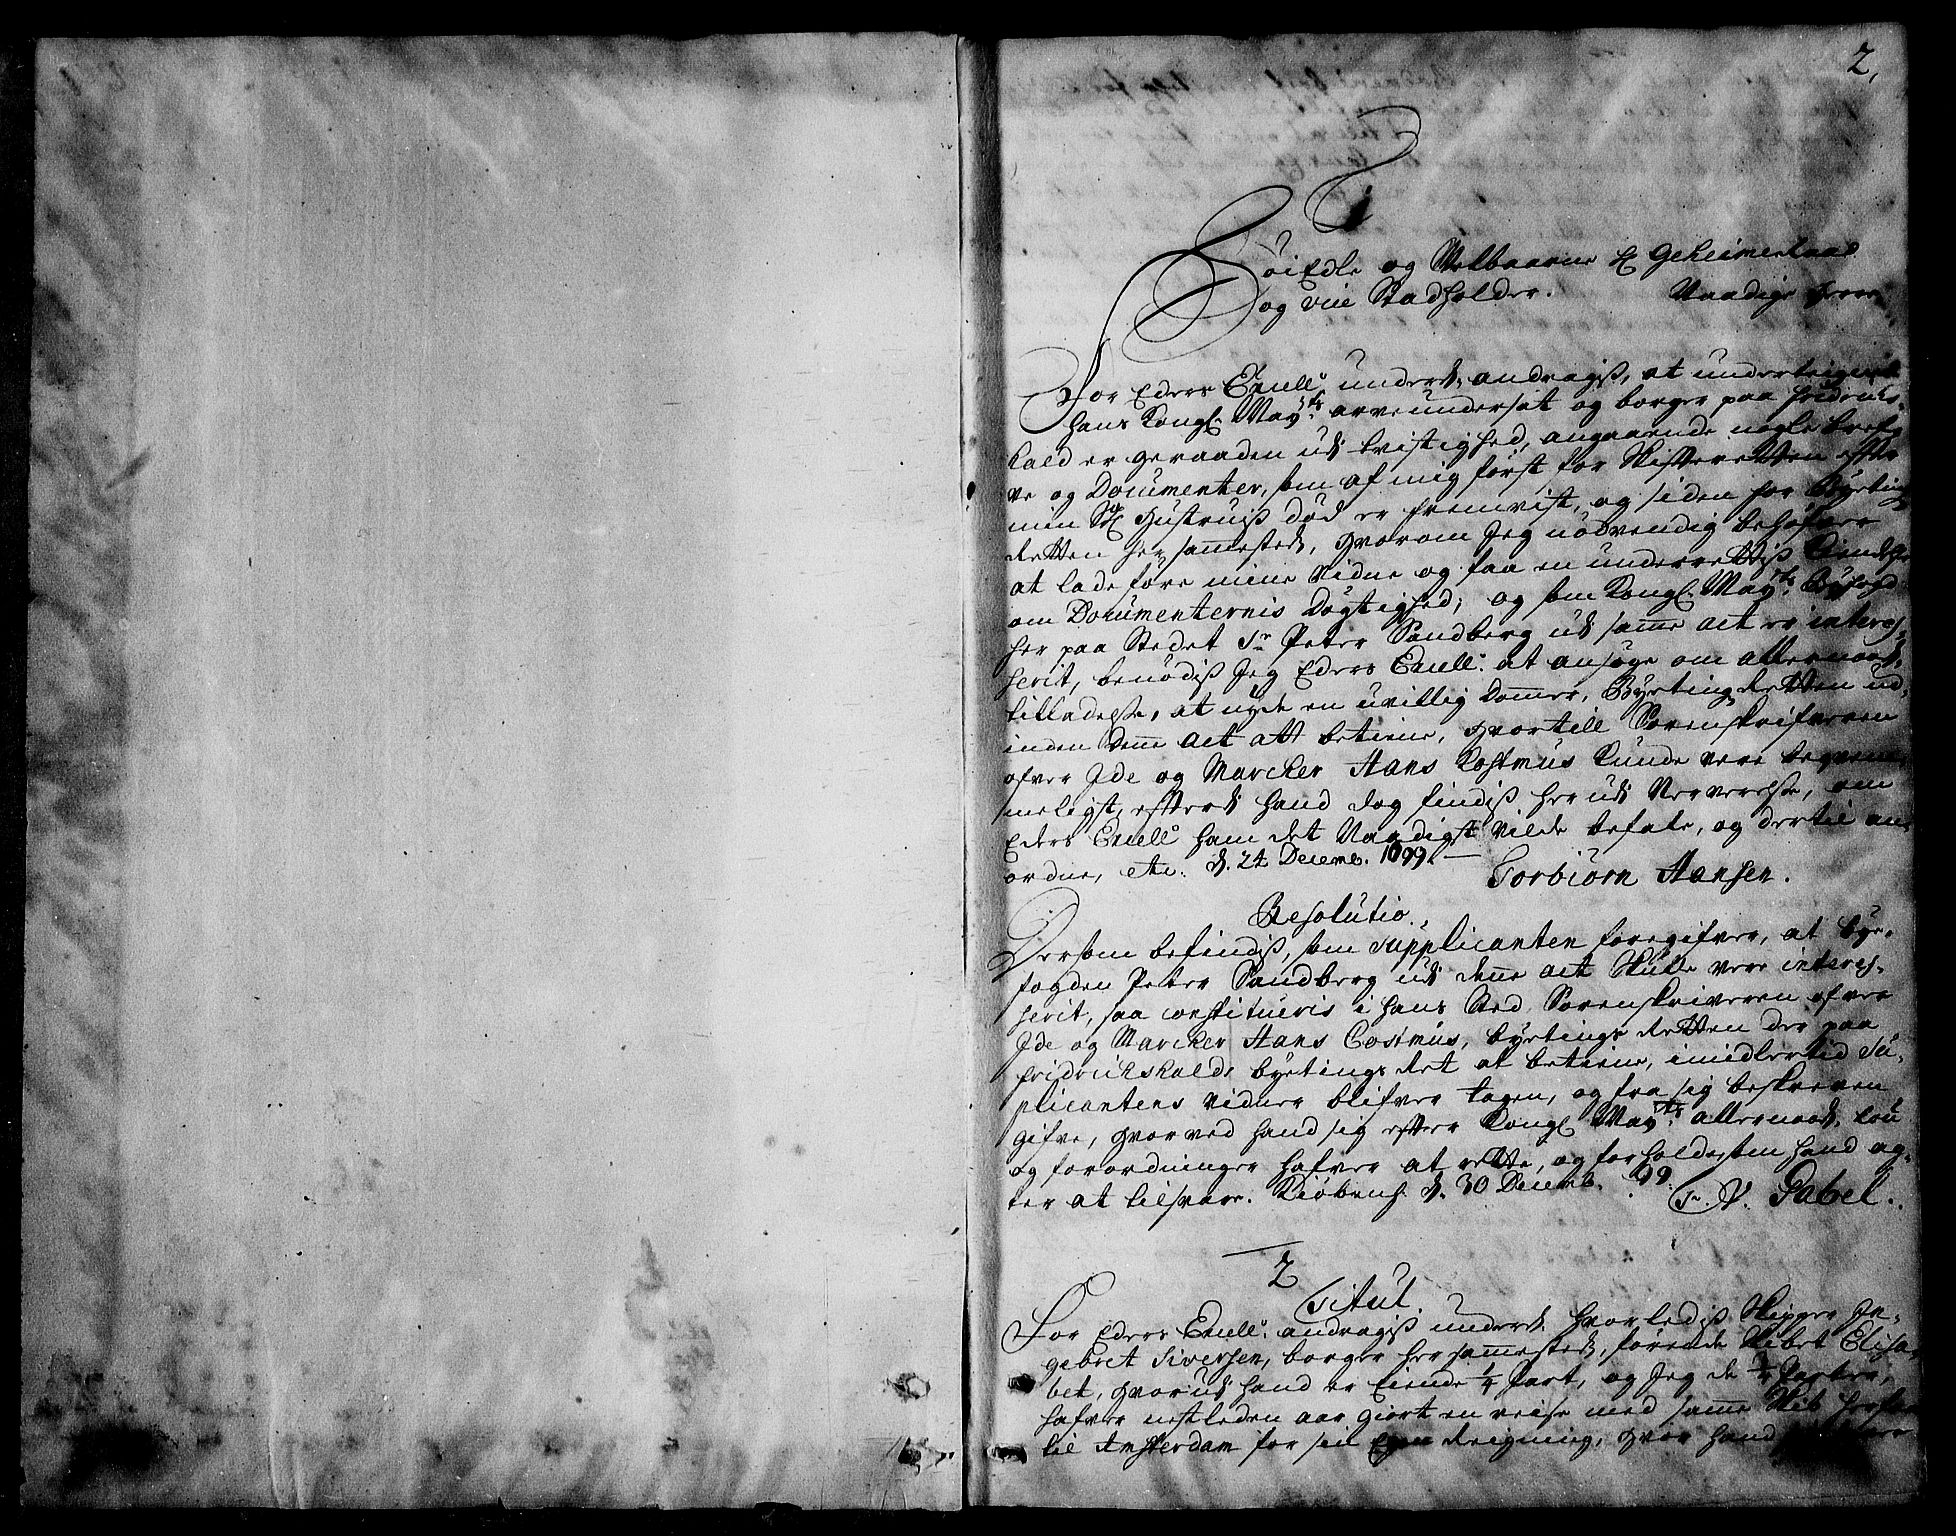 2,
1
HöiEdle og Velbaarne H Geheimeraad
og vice Stadholder. Naadige Herre
For Eders Excell: underd. andragiß, at undertegnede
hans Kongl. May.ts arveundersat og borger paa Fridrichs-
hald er geraaden udi tvistighed, angaaende nogle bref-
ve og Documenter, som af mig først for Skiffteretten effter
min Sl: Hustruiß död er fremvist, og siden for Byeting
Retten her sammesteds, hvorom Jeg nödvendig behöfver
at lade före mine Vidne og faa en underrettiß Kiendelse
om Documenternis Dögtighed; og som Kongl. May.ts Byefogd
her paa Stedet Sr Peter Sandberg udi samme act er interes-
serit, benödiß Jeg Eders Excell: at ansöge om allernaad.
tilladelse, at nyde en uvillig Dommer, Byetings Retten ud-
inden denne act att betiene, hvortill Sorenskrifveren
ofver Ide og Marcker Hans Costmus kunde vere beqvem-
meligst, effterdi hand dog findiß her udi Nerverelse, om
Eders Excell: ham det Naadigst vilde befale, og dertil an-
ordne, etc: d. 24 Decemb. 1699. Torbiörn Hansen.
Resolutio.
Dersom befindiß, som Supplicanten foregifver, at bye-
fogden Peter Sandberg udi denne act skulle vere interes-
serit, saa constitueris i hans Sted Sorenskriveren ofver
Ide og Marcker Hans Costmus, byetings Retten der paa
Fridrichshalds byetings Ret at betiene, imidlertid Su-
plicantens vidner blifver tagen, og fra sig beskreven
gifve, hvorved hand sig effter Kongl. May.ts allernaad. lou
og forordninger hafver at rette, og forholde som hand ag-
ter at tilsvare. Kiöbenh. d. 30 Decemb. 99. Fr. V. Gabel.
2
Titul.
For Eders Excell: andragiß underd. hvorlediß Skipper In-
gebret Siversen, borger her sammesteds, förende Skibet Elisa-
bet, hvorudi hand er Eiende 1/4 Part, og Jeg de 3/4 Parter,
hafver nestleden aar giort en reise med samme Skib herfra
til Amsterdam for sin Egen Reigning, hvor hand